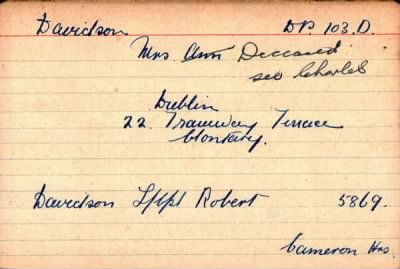 Davidson DP. 103. D.
Mrs Ann Deceased
see Charles
Dublin
22. Tramway Terrace
Clontarf.
Davidson L/Cpl Robert 5869.
Cameron Hrs.